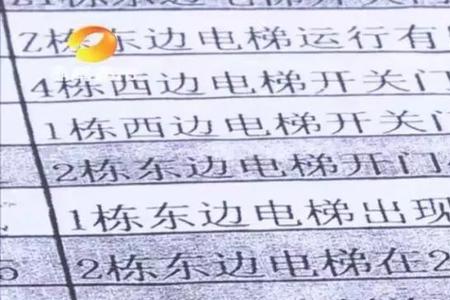 栋东边电梯开关门
2栋东边电梯运行有
4栋西边电梯开关门
1栋西边电梯开关门
2栋东边电梯开门
1栋东边电梯出现
5 2栋东边电梯在2